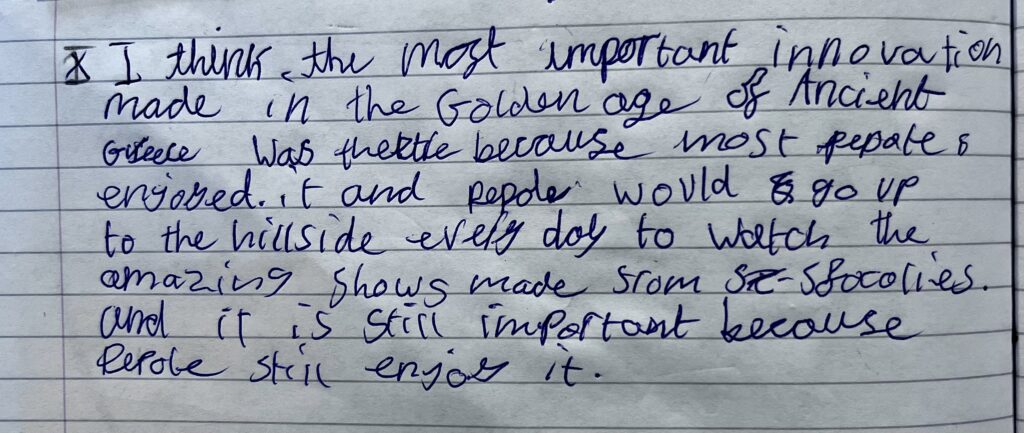 I think the most important innovation
made in the Golden age of Ancient
Greece was thektle because most pepole
enjoyed. it and pepole would go up
to the hillside every day to watch the
amazing shows made from Sfocolies.
and it is still important because
Pepole still enjoy it.